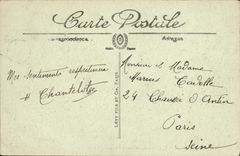 Carte Postale
Correspondance
Adresse
Mes sentiments respectueux
Chantelot
Monsieur et Madame
Marius
24 Chaussée d'Antin
Paris
Seine